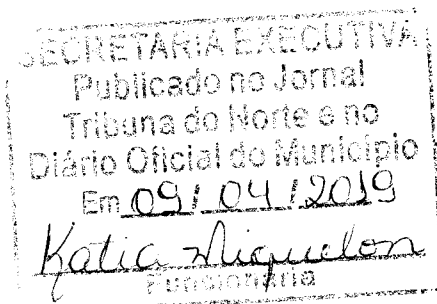 SECRETARIA EXECUTIVA
Publicado no Jornal
Tribuna do Norte e no
Diário Oficial do Município
Em 09/04/2019
Katia Miquelon
Funcionária